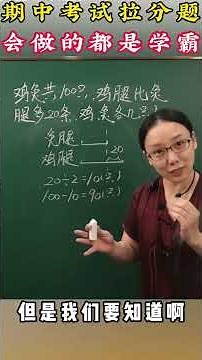 期中考试拉分题
会做的都是学霸
鸡兔共100只,鸡腿比兔
腿多20条,鸡兔各几只?
兔腿
鸡腿 20
20÷2=10(只)
100-10=90(只)
但是我们要知道啊